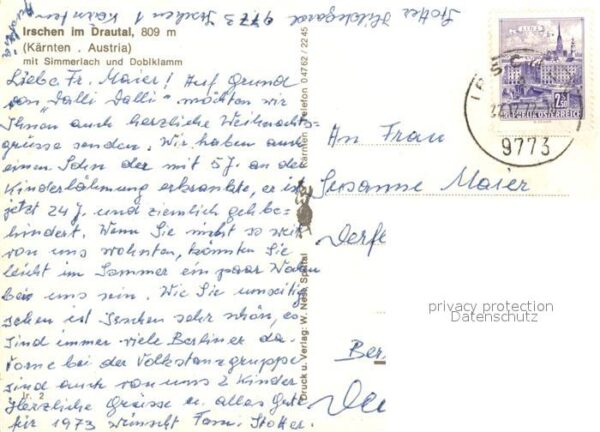 Stotter Hildegard 9773 Irschen 1 Kärnten
Irschen im Drautal, 809 m
(Kärnten . Austria)
mit Simmerlach und Doblklamm
Liebe Fr. Maier! Auf Grund
von "Dalli Dalli" möchten wir
Ihnen auch herzliche Weihnachts-
grüsse senden. Wir haben auch
einen Sohn der mit 5 J. an der
Kinderlähmung erkrankte, er ist
jetzt 24 J. und ziemlich gehbe-
hindert. Wenn Sie nicht so weit
von uns wohnten, könnten Sie
leicht im Sommer ein paar Wochen
bei uns sein. Wie Sie umseitig
sehen ist Irschen sehr schön, es
sind immer viele Berliner da.
Vorne bei der Volkstanzgruppe
sind auch von uns 2 Kinder
Herzliche Grüsse u. alles Gute
für 1973 wünscht Fam. Stotter.
Ir. 2
Druck u. Verlag: W. Neek Spittal
Kärnten Telefon 04762 / 2245
LINZ
2.50
REPUBLIK ÖSTERREICH
IRSC
9773
An Frau
Susanne Maier
Ber
privacy protection
Datenschutz